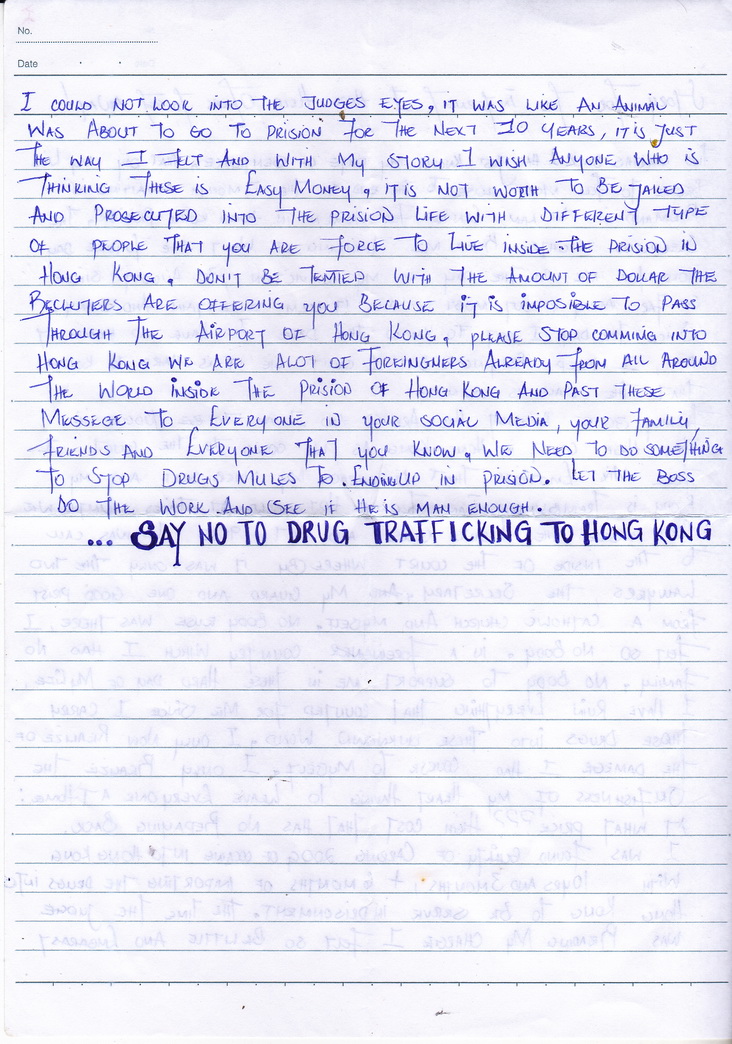 No.
Date
I COULD NOT LOOK INTO THE JUDGES EYES, IT WAS LIKE AN ANIMAL
WAS ABOUT TO GO TO PRISION FOR THE NEXT 10 YEARS, IT IS JUST
THE WAY I FELT AND WITH MY STORY I WISH ANYONE WHO IS
THINKING THESE IS EASY MONEY. IT IS NOT WORTH TO BE JAILED
AND PROSECUTED INTO THE PRISION LIFE WITH DIFFERENT TYPE
OF PEOPLE THAT YOU ARE FORCE TO LIVE INSIDE THE PRISION IN
HONG KONG. DON'T BE TEMTIED WITH THE AMOUNT OF DOLLAR THE
RECLUTERS ARE OFFERING YOU BECAUSE IT IS IMPOSIBLE TO PASS
THROUGH THE AIRPORT OF HONG KONG, PLEASE STOP COMMING INTO
HONG KONG WE ARE ALOT OF FOREINGNERS ALREADY FROM ALL AROUND
THE WORLD INSIDE THE PRISION OF HONG KONG AND PAST THESE
MESSEGE TO EVERYONE IN YOUR SOCIAL MEDIA, YOUR FAMILY,
FRIENDS AND EVERYONE THAT YOU KNOW. WE NEED TO DO SOMETHING
TO STOP DRUGS MULES TO ENDING UP IN PRISION. LET THE BOSS
DO THE WORK AND SEE IF HE IS MAN ENOUGH.
... SAY NO TO DRUG TRAFFICKING TO HONG KONG